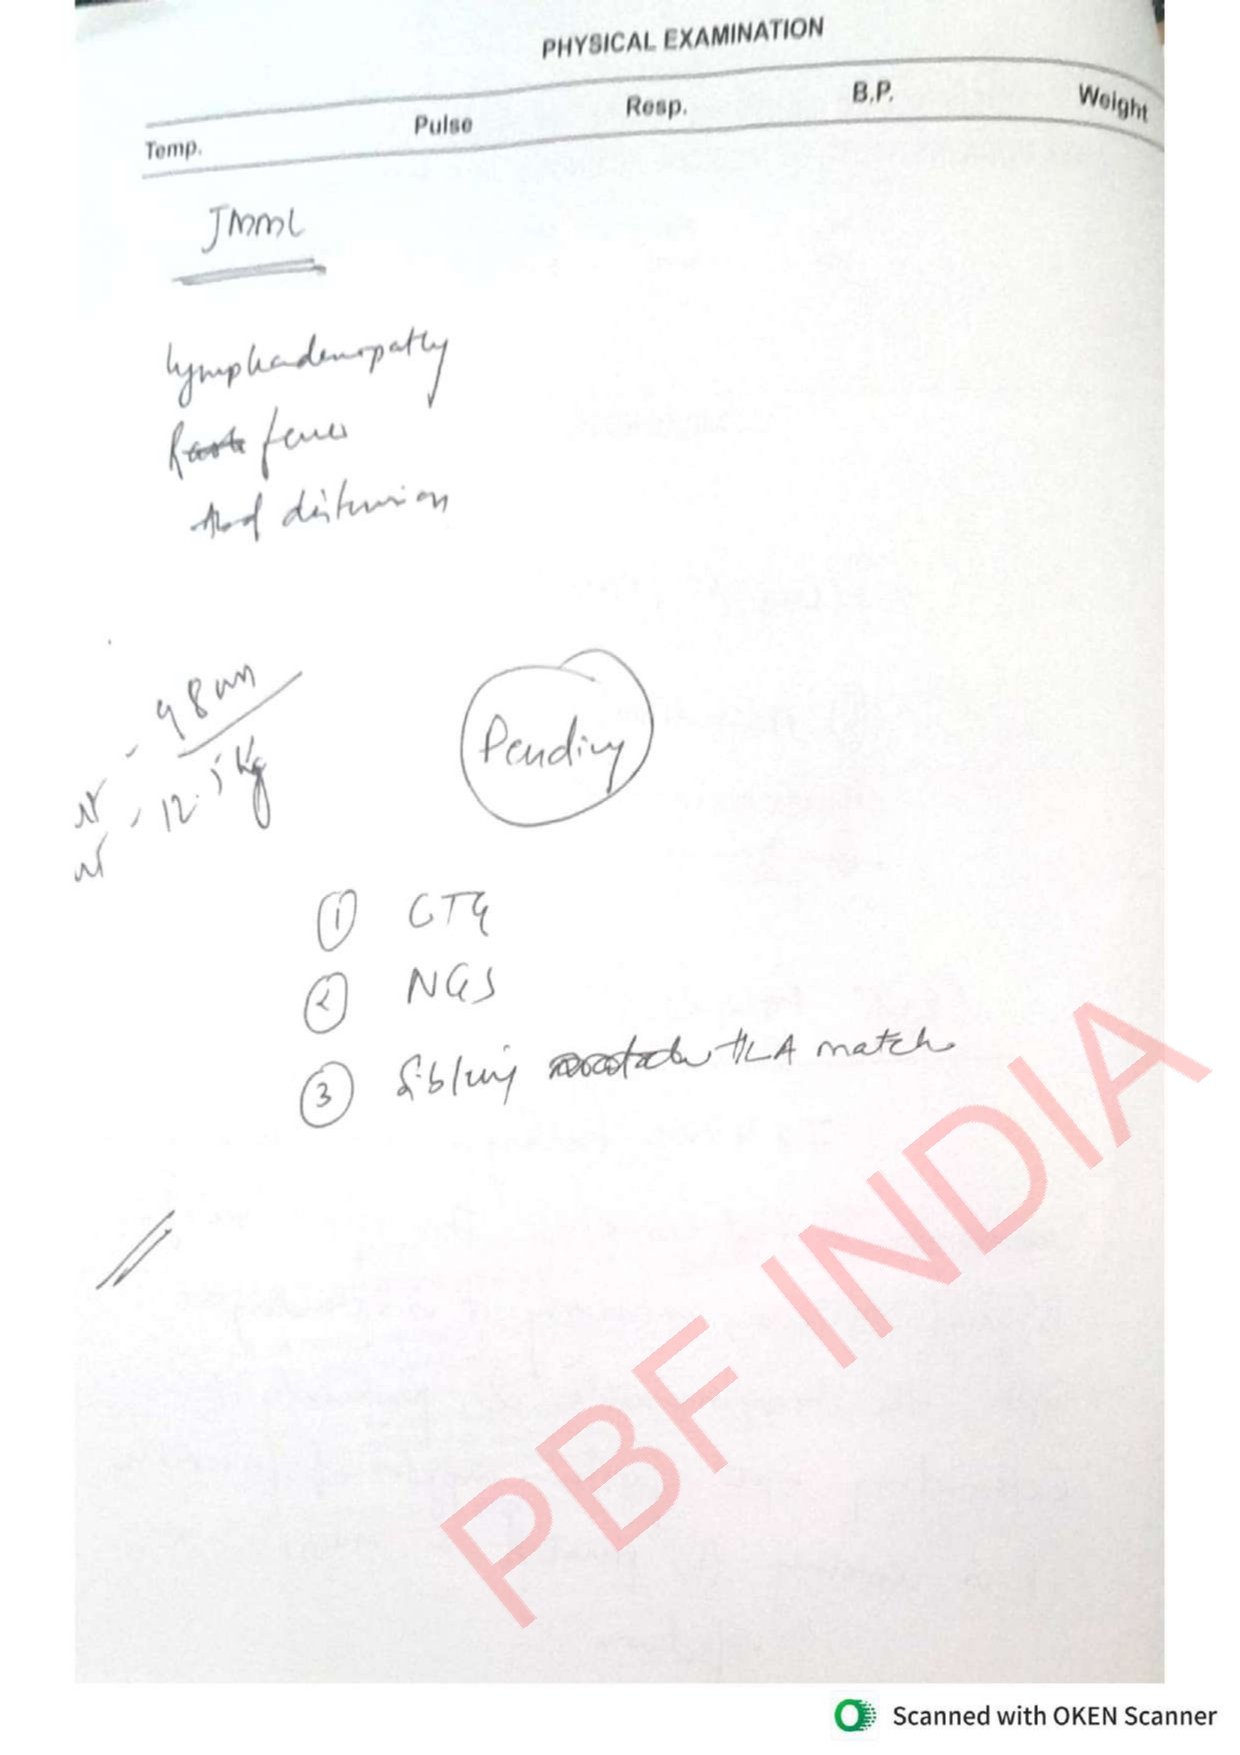 PHYSICAL EXAMINATION
Temp. Pulse Resp. B.P. Weight
JMML
Lymphadenopathy
fever
Abd distension
98 cm
12.5 Kg
Pending
① CTG
② NGS
③ Sibling HLA match
PBF INDIA
Scanned with OKEN Scanner